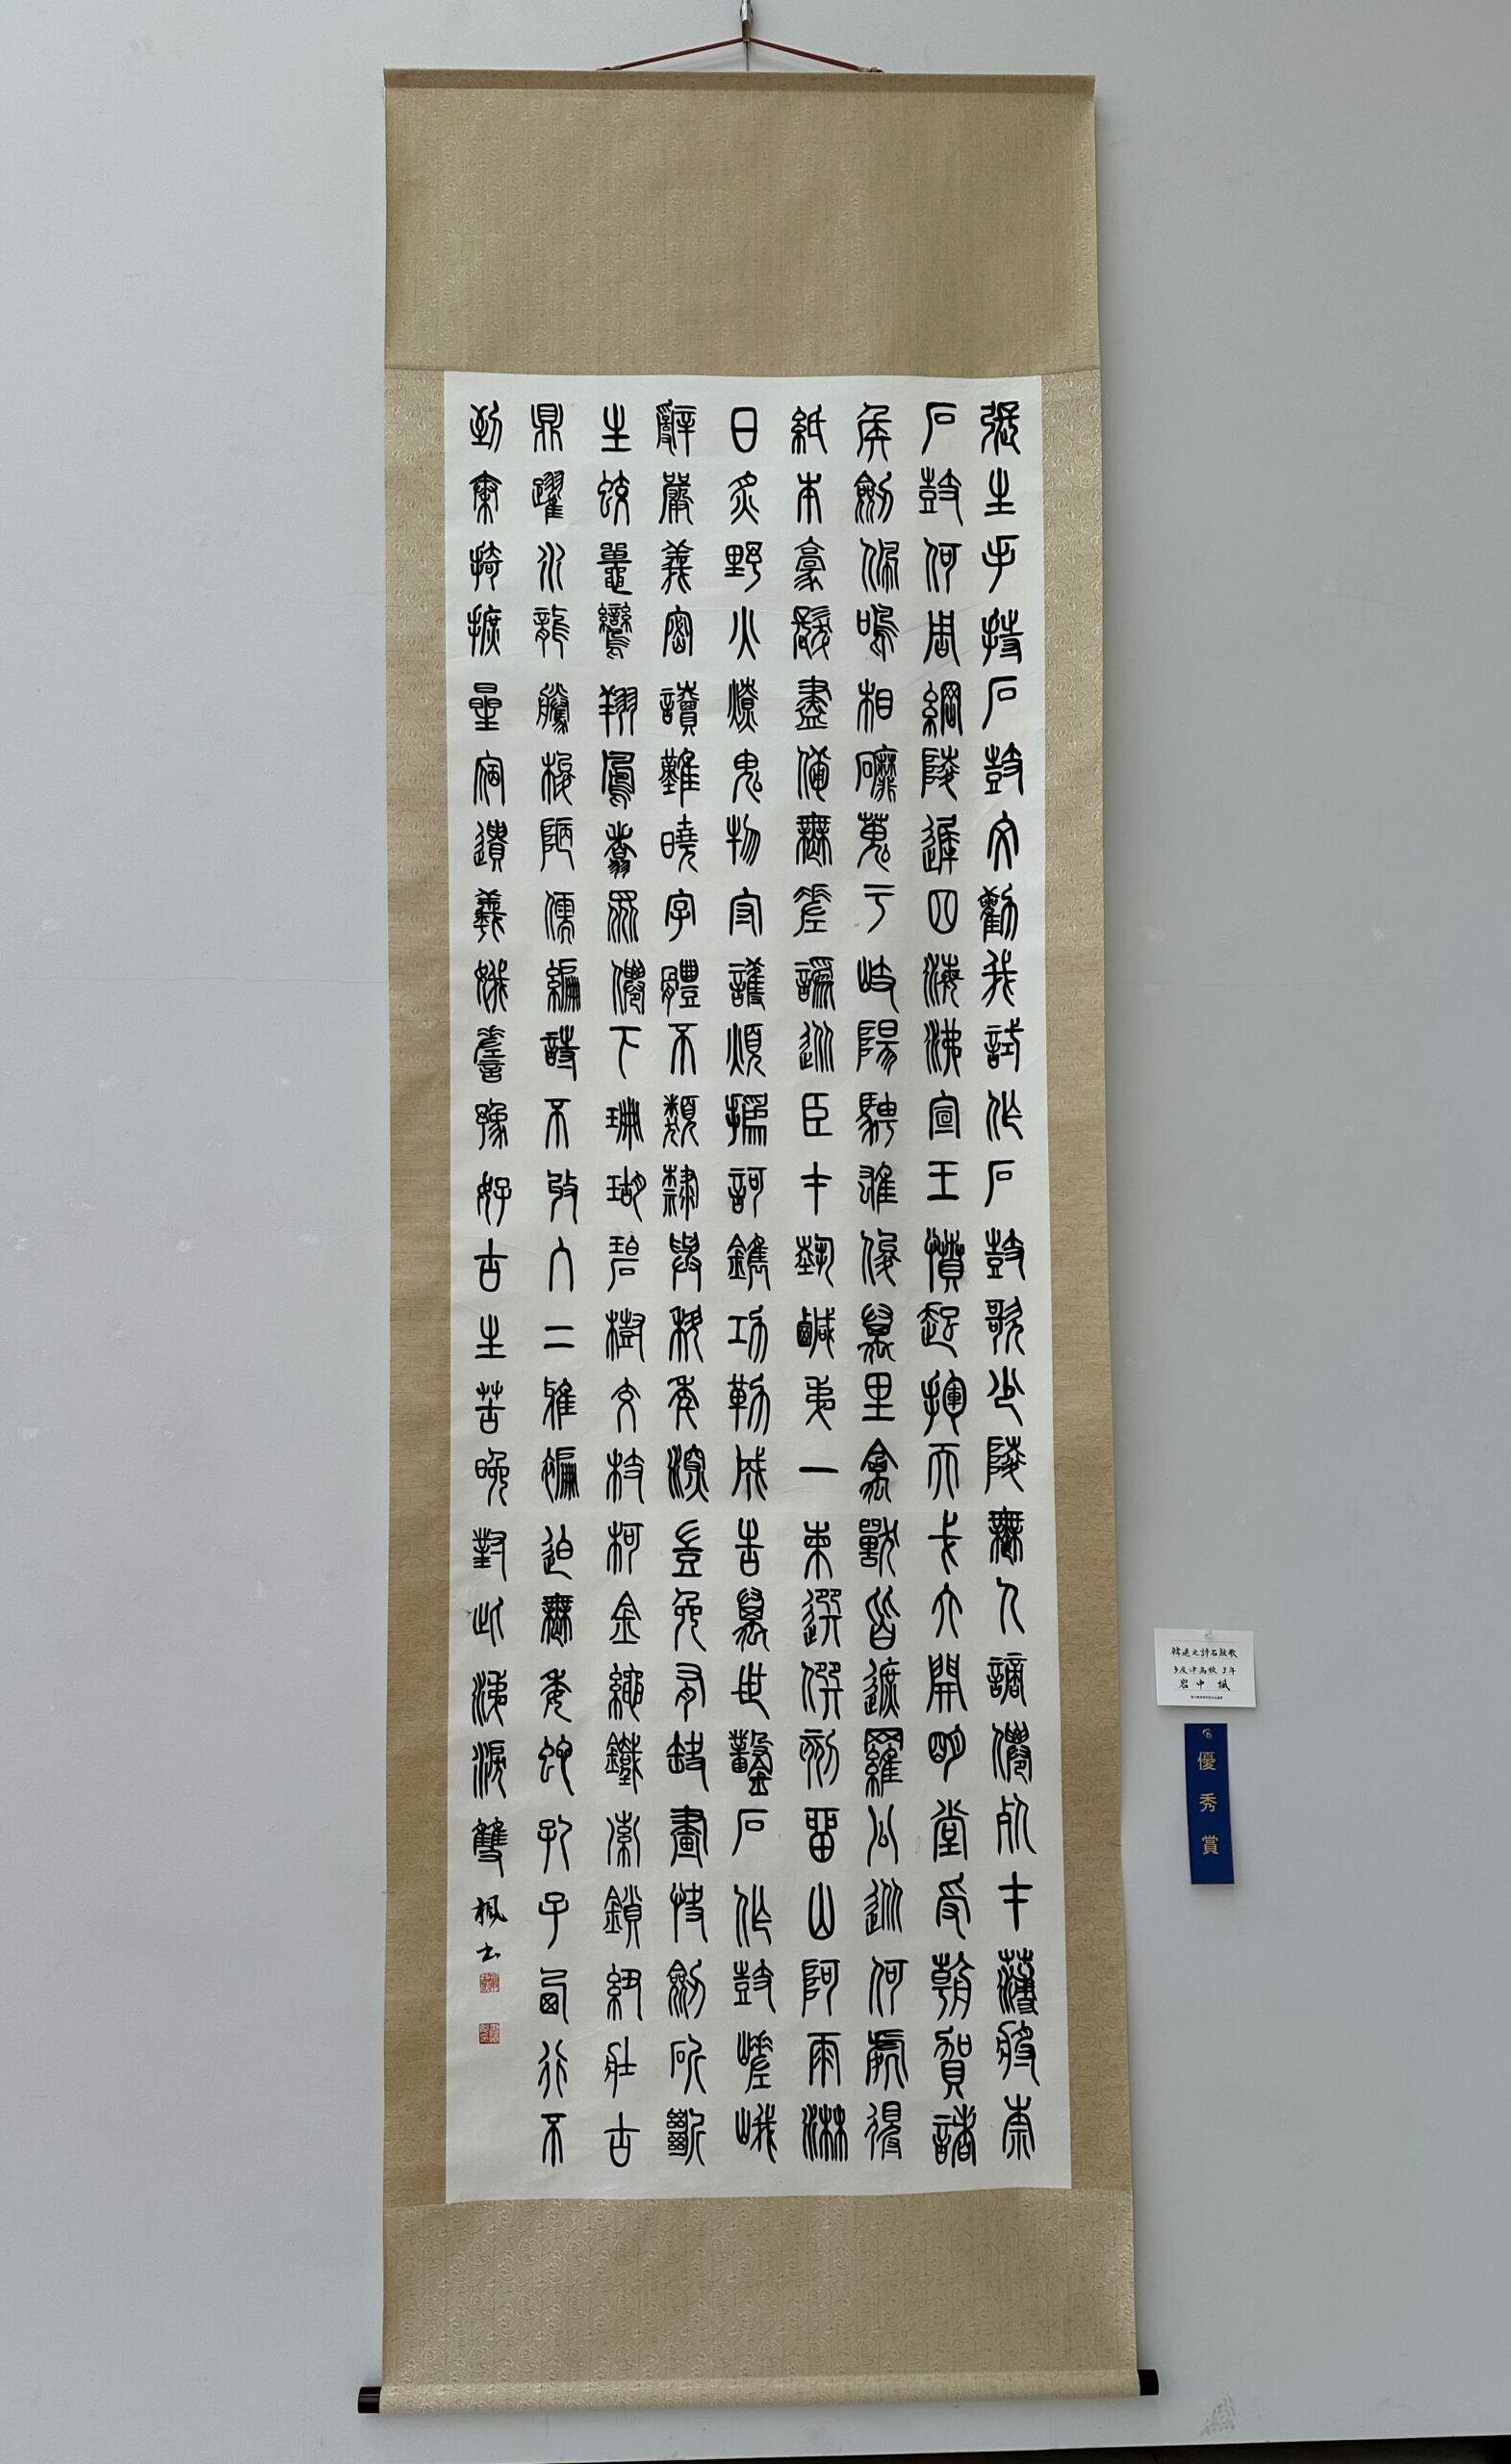 張生手持石鼓文勸我試作石鼓歌少陵無人謫僊死才薄將奈
石鼓何周綱陵遲四海沸宣王憤起揮天戈大開明堂受朝賀諸
侯劍佩鳴相磨蒐于岐陽騁雄俊萬里禽獸皆遮羅公從何處得
紙本豪髮盡備無差譌從臣才藝鹹第一柬選僎刻留山阿雨淋
日炙野火燎鬼物守護煩撝訶鐫功勒成告萬世鑿石作鼓嵯峨
辭嚴義密讀難曉字體不類隸與科年深豈免有缺畫快劍斫斷
生蛟鼉鸞翔鳳翥眾僊下珊瑚碧樹交枝柯金繩鐵索鎖紐壯古
鼎躍水龍騰梭陋儒編詩不收入二雅褊迫無委蛇孔子西行不
到秦掎摭星宿遺羲娥嗟豫好古生苦晚對此涕淚雙 楓書
韓退之詩石鼓歌
多度津高校 3年
岩中 楓
優秀賞